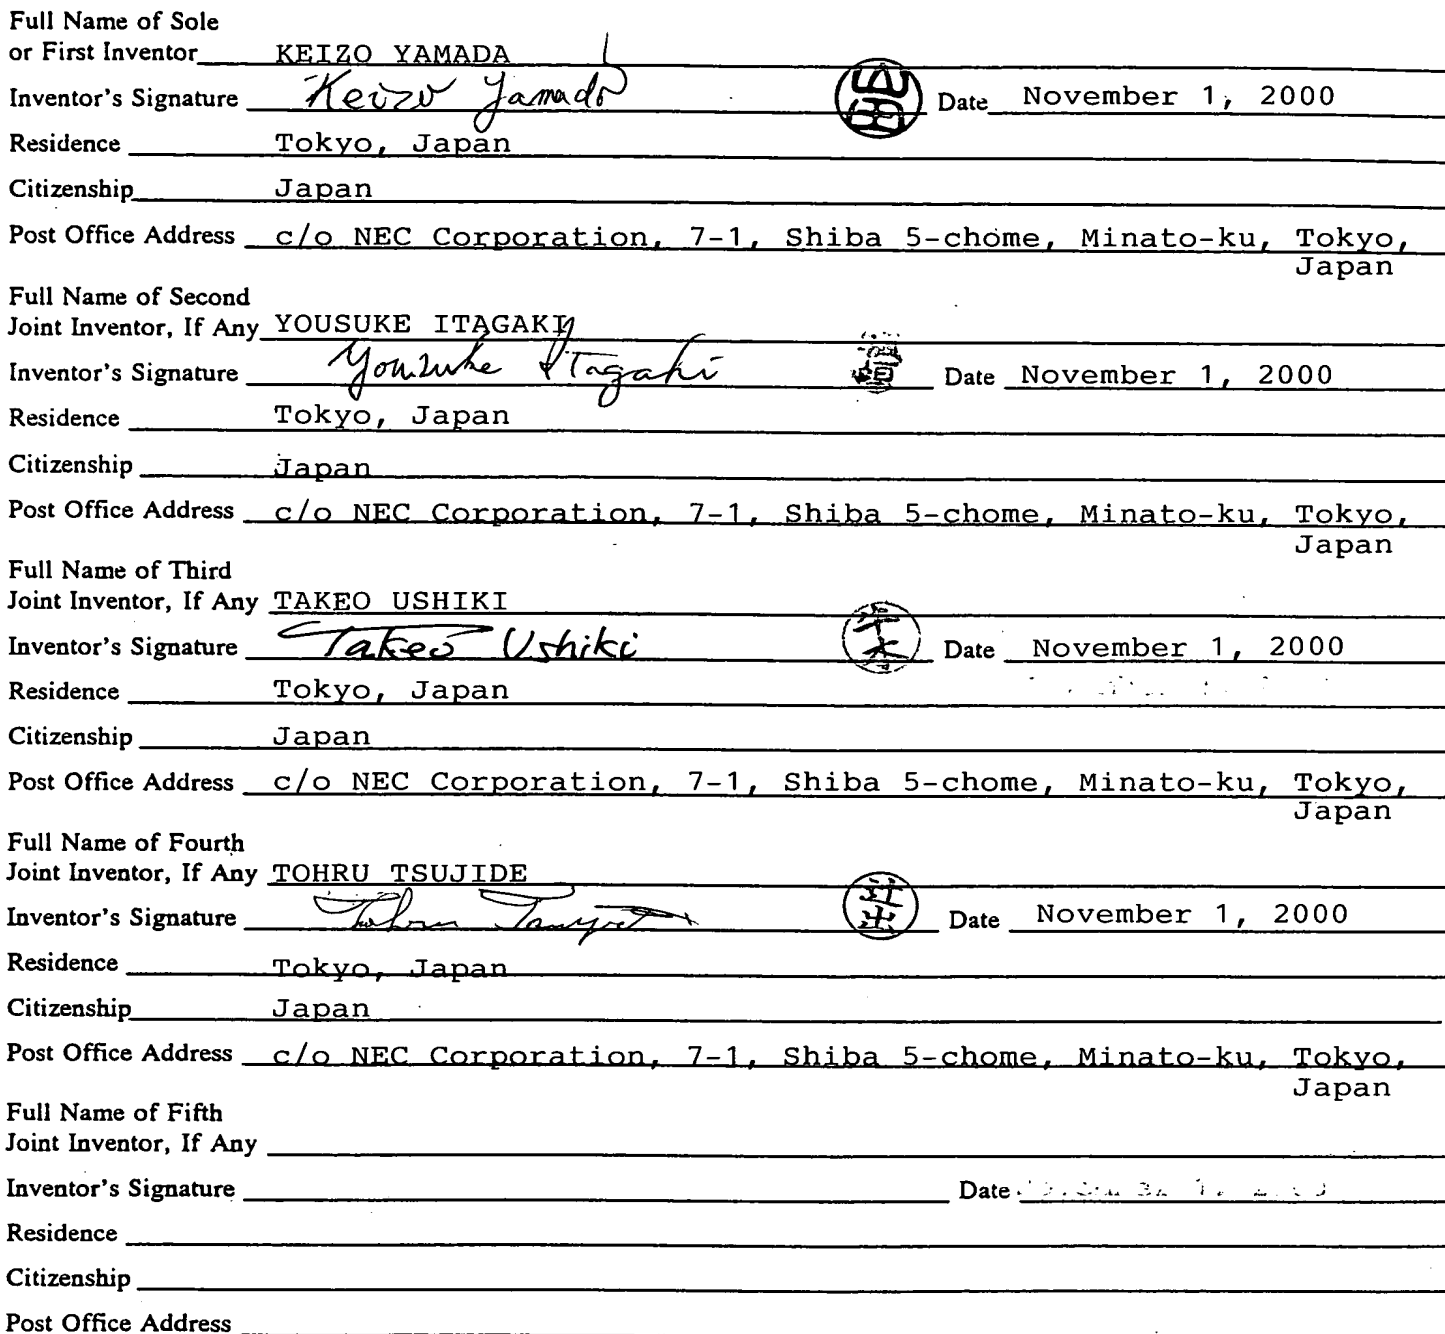 Full Name of Sole
or First Inventor KEIZO YAMADA
Inventor's Signature Keizo Yamada 山田 Date November 1, 2000
Residence Tokyo, Japan
Citizenship Japan
Post Office Address c/o NEC Corporation, 7-1, Shiba 5-chome, Minato-ku, Tokyo,
Japan
Full Name of Second
Joint Inventor, If Any YOUSUKE ITAGAKI
Inventor's Signature Yousuke Itagaki Date November 1, 2000
Residence Tokyo, Japan
Citizenship Japan
Post Office Address c/o NEC Corporation, 7-1, Shiba 5-chome, Minato-ku, Tokyo,
Japan
Full Name of Third
Joint Inventor, If Any TAKEO USHIKI
Inventor's Signature Takeo Ushiki Date November 1, 2000
Residence Tokyo, Japan
Citizenship Japan
Post Office Address c/o NEC Corporation, 7-1, Shiba 5-chome, Minato-ku, Tokyo,
Japan
Full Name of Fourth
Joint Inventor, If Any TOHRU TSUJIDE
Inventor's Signature Tohru 辻出 Date November 1, 2000
Residence Tokyo, Japan
Citizenship Japan
Post Office Address c/o NEC Corporation, 7-1, Shiba 5-chome, Minato-ku, Tokyo,
Japan
Full Name of Fifth
Joint Inventor, If Any
Inventor's Signature Date
Residence
Citizenship
Post Office Address